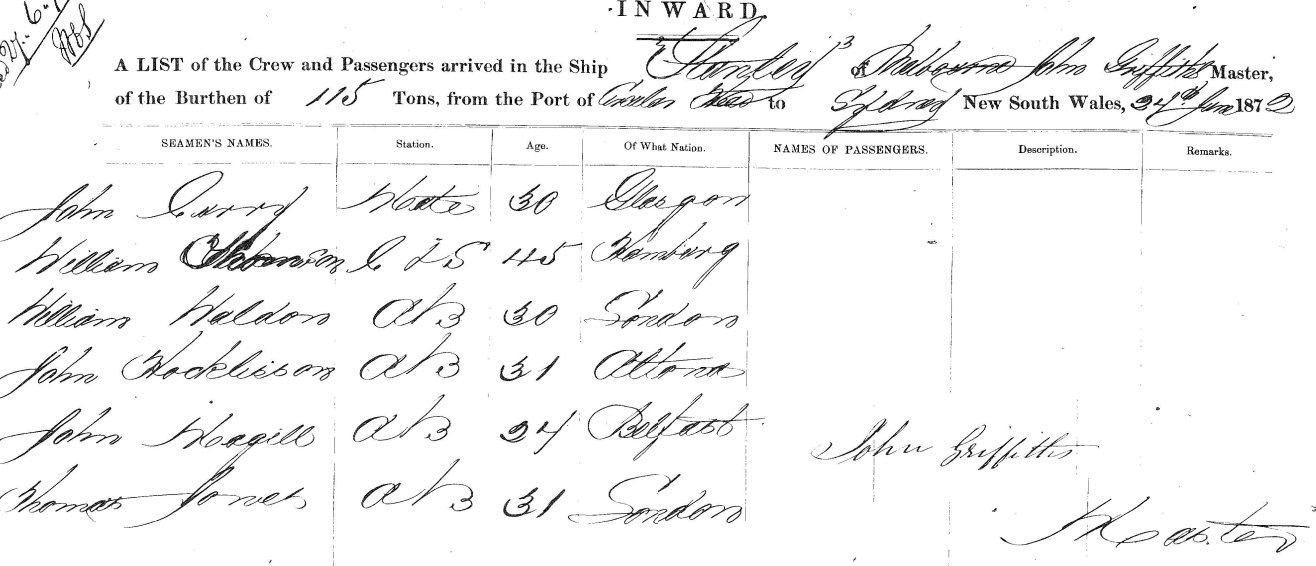 INWARD
A LIST of the Crew and Passengers arrived in the Ship "Stanley" of Melbourne John Griffiths Master,
of the Burthen of 115 Tons, from the Port of Circular Head to Sydney New South Wales, 24th June 1872
SEAMEN'S NAMES. Station. Age. Of What Nation. NAMES OF PASSENGERS. Description. Remarks.
John Curry Mate 30 Glasgow
William C & S 45 Hamburg
William Waldon AB 30 London
John AB 31 Altona
John Magill AB 24 Belfast
John Griffiths
Thomas Jones AB 31 London
Master